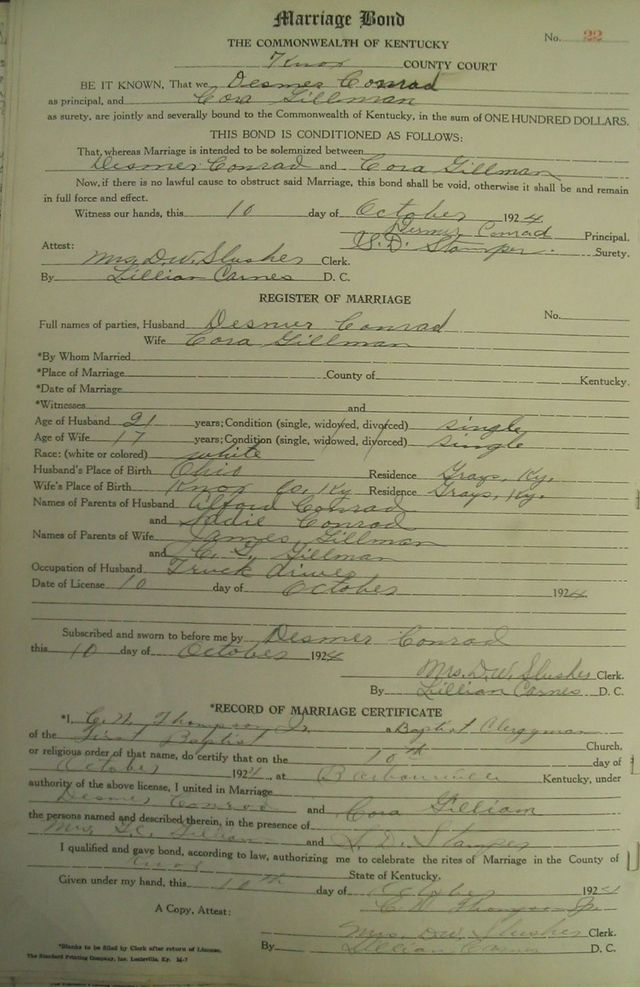 Marriage Bond
No. 22
THE COMMONWEALTH OF KENTUCKY
Knox COUNTY COURT
BE IT KNOWN, That we Desmer Conrad
as principal, and Cora Gillman
as surety, are jointly and severally bound to the Commonwealth of Kentucky, in the sum of ONE HUNDRED DOLLARS.
THIS BOND IS CONDITIONED AS FOLLOWS:
That, whereas Marriage is intended to be solemnized between
Desmer Conrad and Cora Gillman
Now, if there is no lawful cause to obstruct said Marriage, this bond shall be void, otherwise it shall be and remain
in full force and effect.
Witness our hands, this 10 day of October 1924
Desmer Conrad Principal.
Attest: S. D. Stamper. Surety.
Mrs. D.W. Slusher Clerk.
By Lillian Carnes D. C.
REGISTER OF MARRIAGE
No.
Full names of parties, Husband Desmer Conrad
Wife Cora Gillman
*By Whom Married
*Place of Marriage County of Kentucky.
*Date of Marriage
*Witnesses and
Age of Husband 21 years; Condition (single, widowed, divorced) single
Age of Wife 17 years; Condition (single, widowed, divorced) single
Race: (white or colored) white
Husband's Place of Birth Ohio Residence Grays, Ky.
Wife's Place of Birth Knox Co, Ky Residence Grays, Ky.
Names of Parents of Husband Alford Conrad
and Sadie Conrad
Names of Parents of Wife James Gillman
and C. G. Gillman
Occupation of Husband Truck driver
Date of License 10 day of October 1924
Subscribed and sworn to before me by Desmer Conrad
this 10 day of October 1924
Mrs. D.W. Slusher Clerk.
By Lillian Carnes D. C.
*RECORD OF MARRIAGE CERTIFICATE
*I, C. N. Thompson Jr. a Baptist Clergyman
of the First Baptist Church,
or religious order of that name, do certify that on the 10th day of
October 1924, at Barbourville Kentucky, under
authority of the above license, I united in Marriage
Desmer Conrad and Cora Gilliam
the persons named and described therein, in the presence of
Mrs. and S. D. Stamper
I qualified and gave bond, according to law, authorizing me to celebrate the rites of Marriage in the County of
Knox State of Kentucky.
Given under my hand, this 10th day of October 1924
C. N. Thompson Jr.
A Copy, Attest:
Mrs. D.W. Slusher Clerk.
By Lillian Carnes D. C.
*Blanks to be filed by Clerk after return of License.
The Standard Printing Company, Inc. Louisville, Ky. M-7